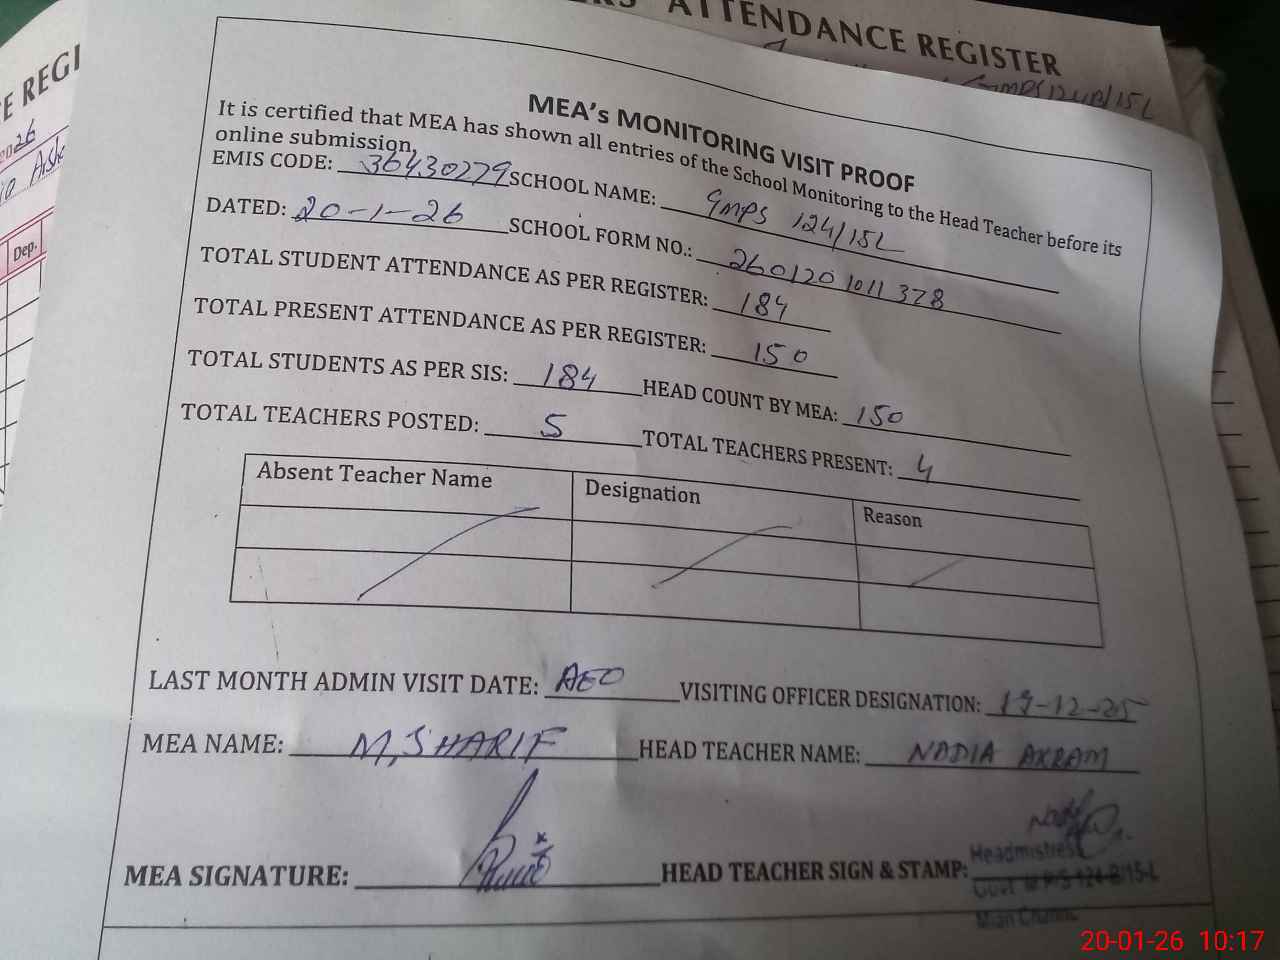 ATTENDANCE REGISTER
GMPS 124/B/15L
E REGI
2026
Dep.
MEA's MONITORING VISIT PROOF
It is certified that MEA has shown all entries of the School Monitoring to the Head Teacher before its
online submission.
EMIS CODE: 36430279 SCHOOL NAME: GMPS 124/15L
DATED: 20-1-26 SCHOOL FORM NO.: 260120 1011 378
TOTAL STUDENT ATTENDANCE AS PER REGISTER: 184
TOTAL PRESENT ATTENDANCE AS PER REGISTER: 150
TOTAL STUDENTS AS PER SIS: 184 HEAD COUNT BY MEA: 150
TOTAL TEACHERS POSTED: 5 TOTAL TEACHERS PRESENT: 4
Absent Teacher Name Designation Reason
LAST MONTH ADMIN VISIT DATE: AEO VISITING OFFICER DESIGNATION: 17-12-25
MEA NAME: M, SHARIF HEAD TEACHER NAME: NADIA AKRAM
MEA SIGNATURE: HEAD TEACHER SIGN & STAMP:
Headmistress
Govt. M.P/S 124-B/15-L
Mian Channu
20-01-26 10:17